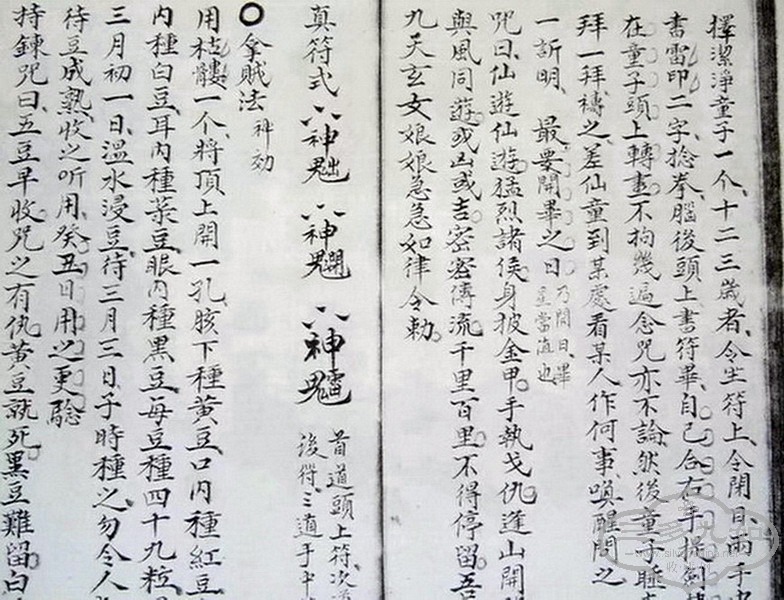 擇潔淨童子一个、十二三歲者、令坐符上、令閉目、兩手
書雷印二字、捻拳、腦後頭上書符畢、自己合右手揑劍
在童子頭上轉畫、不拘幾遍、念咒亦不論、然後童子睡
拜一拜、禱之、差仙童到某處看某人作何事、喚醒問之
一訢明、 最要開畢之日 乃開日、畢
星當值也
咒曰、仙遊仙遊、猛烈諸侯、身披金甲、手執戈仇、逢山開
與風同遊、或凶或吉、密密傳流、千里百里、不得停留、吾
九天玄女娘娘急急如律令勅
真符式 首道頭上符、次道
後符、三道于中
〇拿賊法 神効
用枯髏一个、將頂上開一孔、胲下種黃豆、口內種紅豆
內種白豆、耳內種菉豆、眼內種黑豆、每豆種四十九粒、
三月初一日、溫水浸豆、待三月三日、子時種之、勿令人
待豆成熟、收之听用、癸丑日用之更驗
持鍊咒曰、五豆早收、咒之有仇、黃豆就死、黑豆難留、白